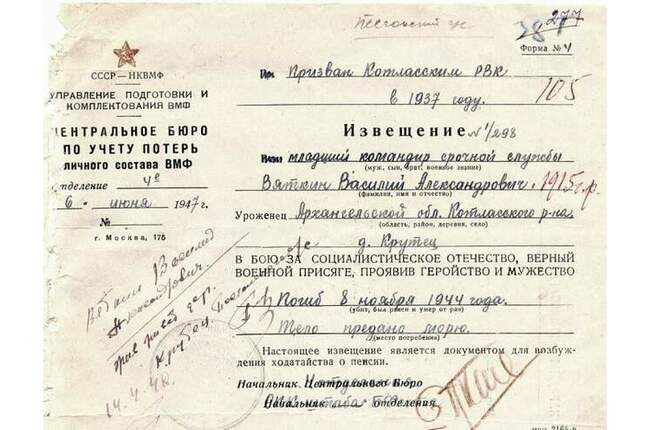 277
Форма № 4
СССР — НКВМФ
УПРАВЛЕНИЕ ПОДГОТОВКИ И
КОМПЛЕКТОВАНИЯ ВМФ
ЦЕНТРАЛЬНОЕ БЮРО
ПО УЧЕТУ ПОТЕРЬ
личного состава ВМФ
Отделение 4е
6 июня 1947 г.
№
г. Москва, 175
Призван Котласским РВК
в 1937 году.
105
Извещение № 1/298
младший командир срочной службы
(муж, сын, брат, военное звание)
Вяткин Василий Александрович 1915 г.р.
(фамилия, имя и отчество)
Уроженец Архангельской обл. Котласского р-на
(область, район, деревня, село)
д. Крутец
В БОЮ ЗА СОЦИАЛИСТИЧЕСКОЕ ОТЕЧЕСТВО, ВЕРНЫЙ
ВОЕННОЙ ПРИСЯГЕ, ПРОЯВИВ ГЕРОЙСТВО И МУЖЕСТВО
Погиб 8 ноября 1944 года.
(убит, был ранен и умер от ран)
Тело предано морю.
(место погребения)
Настоящее извещение является документом для возбуж-
дения ходатайства о пенсии.
Начальник Центрального Бюро
Начальник отделения
Василий
Александрович